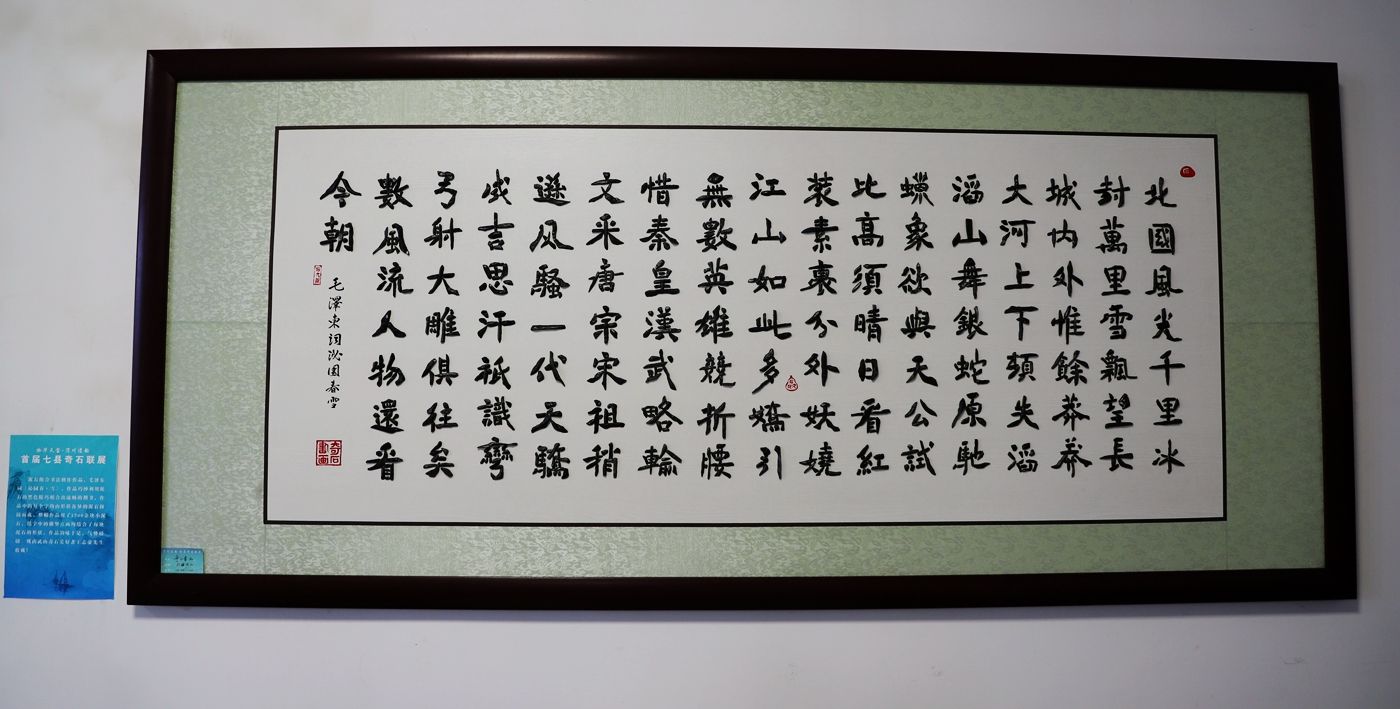 北國風光千里冰
封萬里雪飄望長
城内外惟餘莽莽
大河上下頓失滔
滔山舞銀蛇原馳
蠟象欲與天公試
比高須晴日看紅
裝素裹分外妖嬈
江山如此多嬌引
無數英雄競折腰
惜秦皇漢武略輸
文采唐宗宋祖稍
遜风騷一代天驕
成吉思汗祗識彎
弓射大雕俱往矣
數風流人物還看
今朝
毛澤東詞沁園春雪
奇石書画
首届七县奇石联展